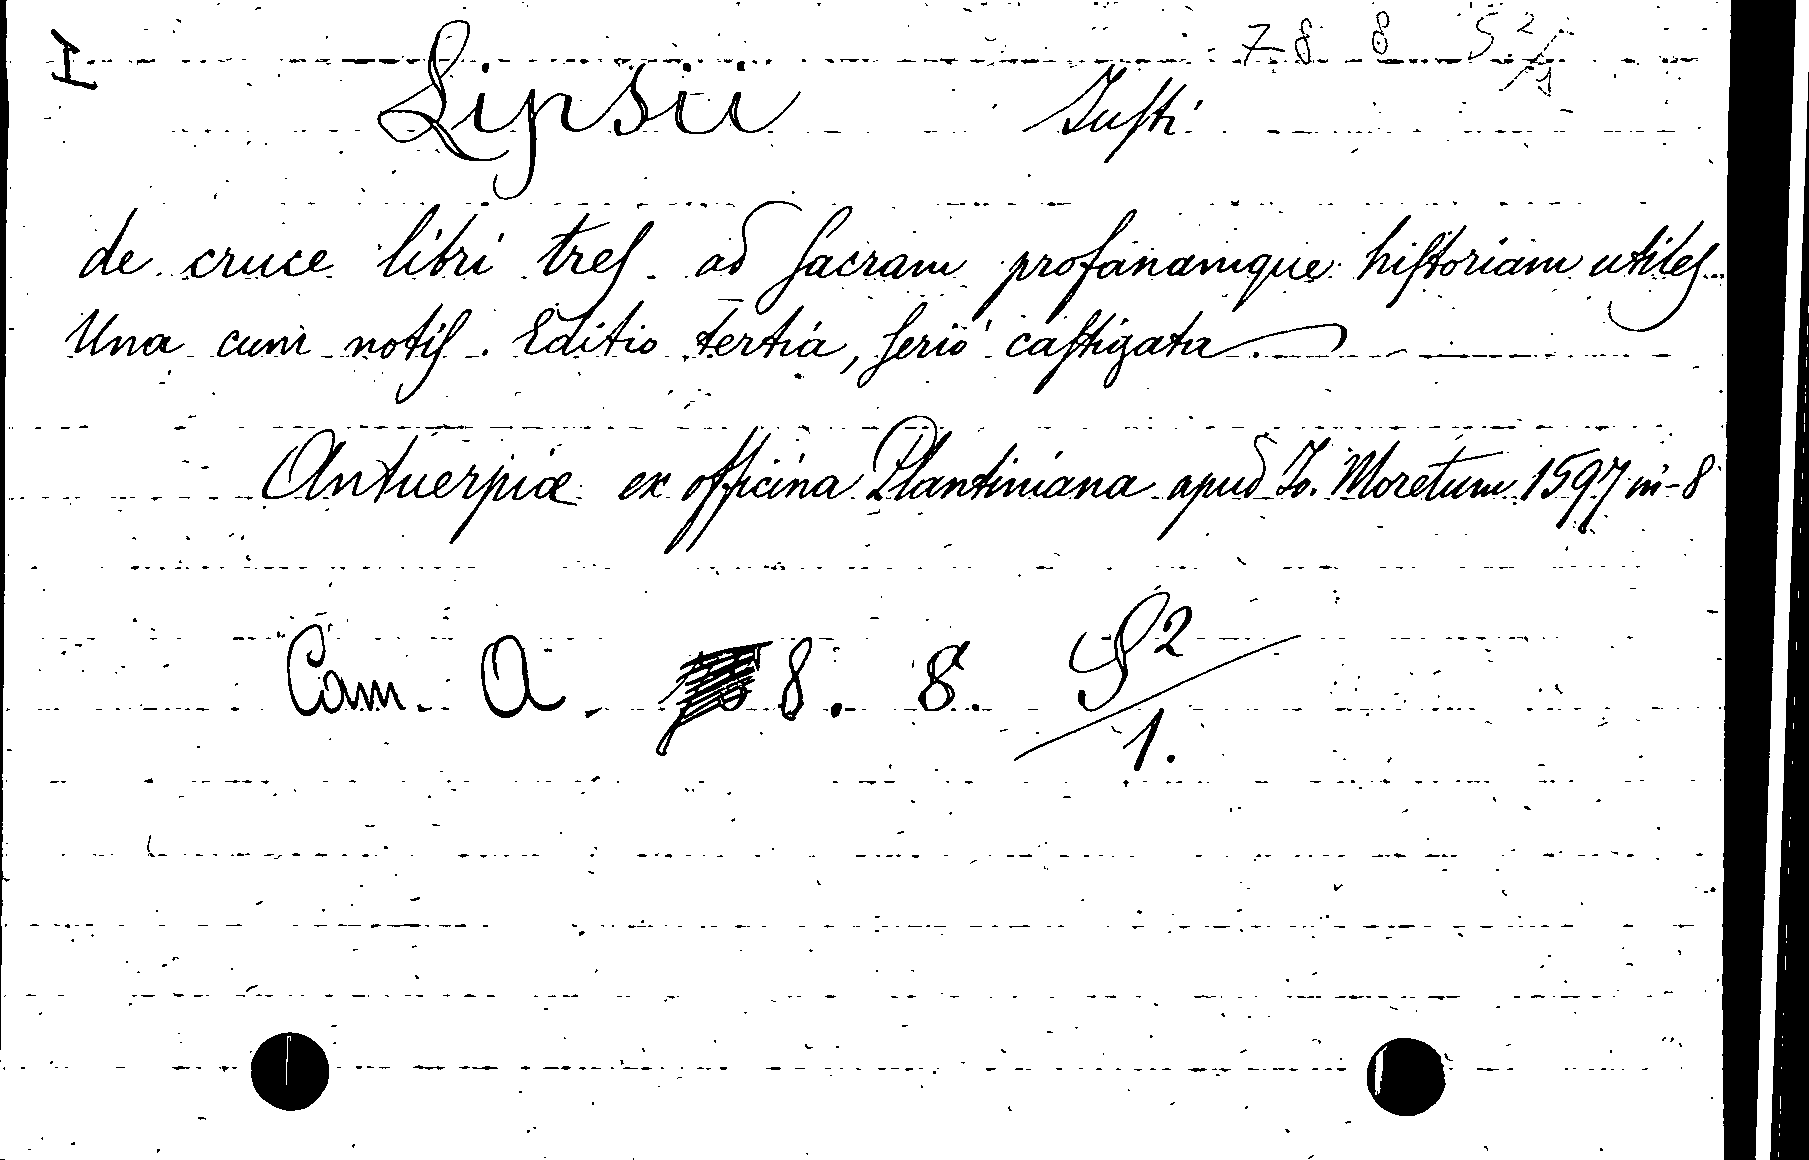 I 7 8 8 S 2/1
Lipsii Iusti
de cruce libri tres ad sacram profanamque historiam utiles.
Una cum notis. Editio tertia, serio castigata.
Antuerpiæ ex officina Plantiniana apud Io. Moretum 1597 in-8
Cam. A. 8. 8. S 2/1.